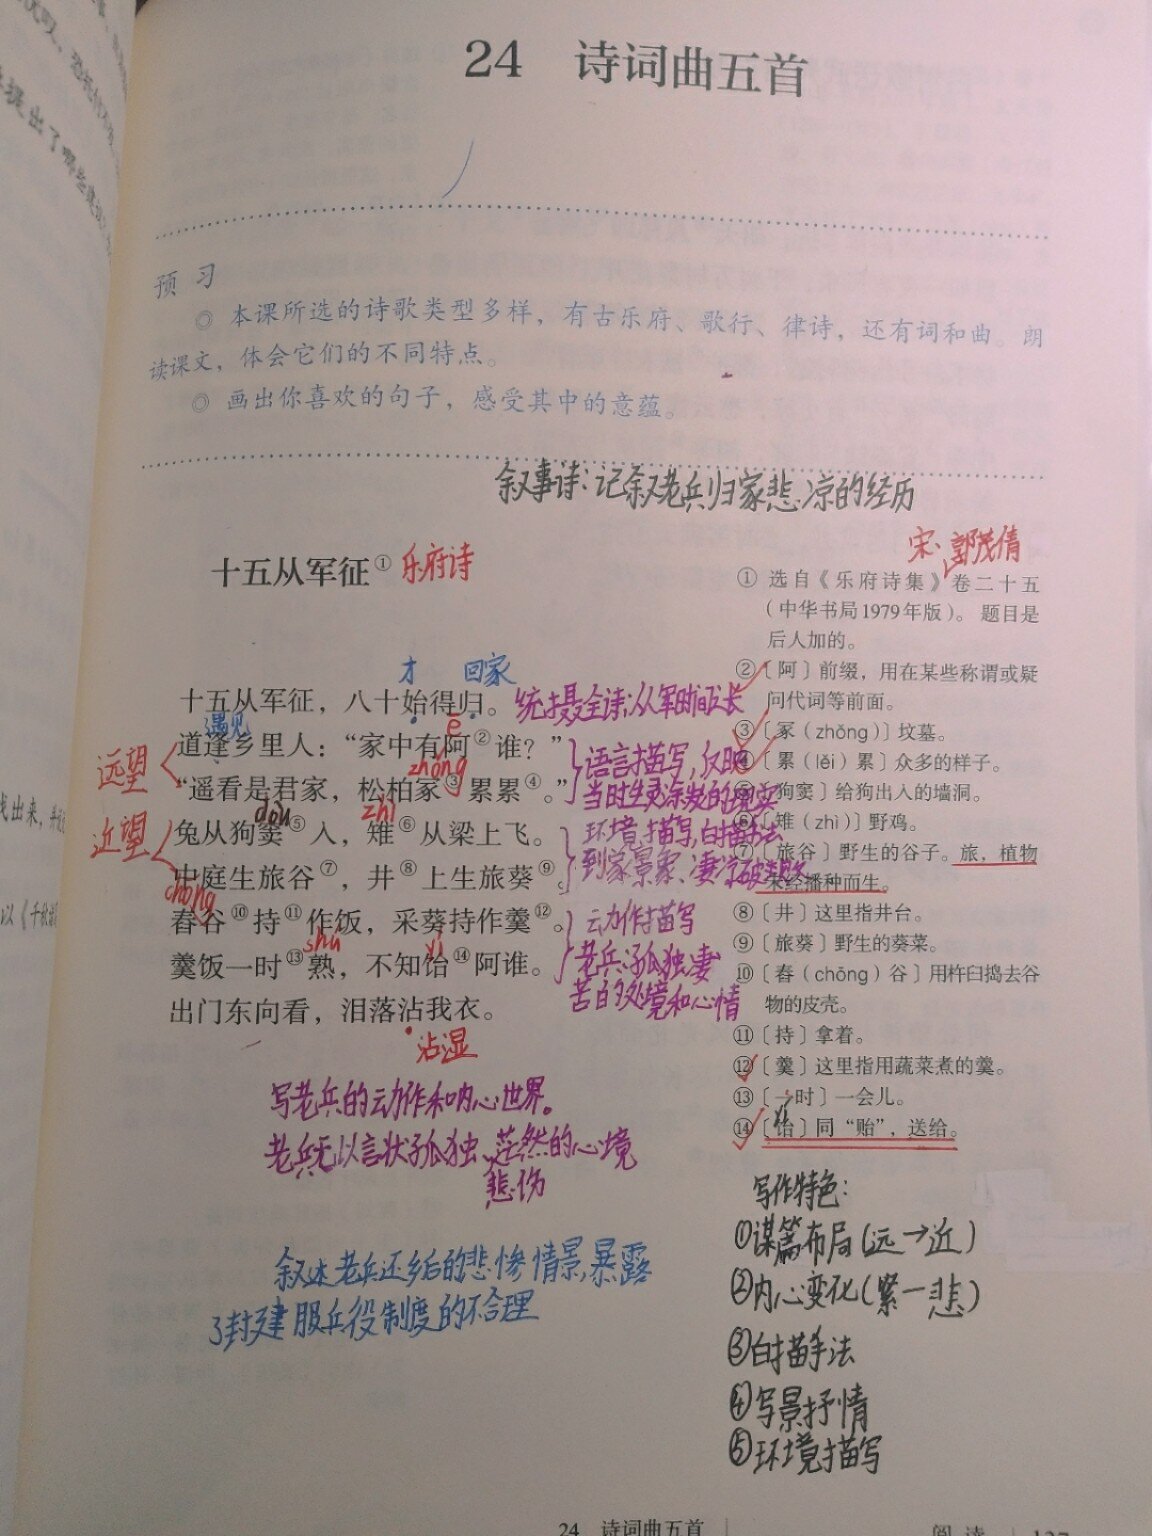 提出了哪些建
24 诗词曲五首
预 习
◎ 本课所选的诗歌类型多样，有古乐府、歌行、律诗，还有词和曲。朗
读课文，体会它们的不同特点。
◎ 画出你喜欢的句子，感受其中的意蕴。
叙事诗：记叙老兵归家悲凉的经历
十五从军征① 乐府诗
才 回家
十五从军征，八十始得归。 统摄全诗：从军时间长
遇见 ē
远望
道逢乡里人：“家中有阿②谁？” 语言描写，反映
zhǒng
“遥看是君家，松柏冢③累累④。” 当时生灵涂炭的现实
dòu zhì
近望
兔从狗窦⑤入，雉⑥从梁上飞。 环境描写，白描手法
中庭生旅谷⑦，井⑧上生旅葵⑨。 到家景象：凄凉破败
chōng
舂谷⑩持⑪作饭，采葵持作羹⑫。 动作描写
shú yí
羹饭一时⑬熟，不知饴⑭阿谁。 老兵：孤独凄
苦的处境和心情
出门东向看，泪落沾我衣。
沾湿
写老兵的动作和内心世界。
老兵无以言状孤独、茫然的心境
悲伤
叙述老兵还乡后的悲惨情景，暴露
了封建服兵役制度的不合理
宋·郭茂倩
① 选自《乐府诗集》卷二十五
（中华书局1979年版）。题目是
后人加的。
②〔阿〕前缀，用在某些称谓或疑
问代词等前面。
③〔冢（zhǒng）〕坟墓。
④〔累（lěi）累〕众多的样子。
⑤〔狗窦〕给狗出入的墙洞。
⑥〔雉（zhì）〕野鸡。
⑦〔旅谷〕野生的谷子。旅，植物
未经播种而生。
⑧〔井〕这里指井台。
⑨〔旅葵〕野生的葵菜。
⑩〔舂（chōng）谷〕用杵臼捣去谷
物的皮壳。
⑪〔持〕拿着。
⑫〔羹〕这里指用蔬菜煮的羹。
⑬〔一时〕一会儿。
yí
⑭〔饴〕同“贻”，送给。
写作特色：
①谋篇布局（远→近）
②内心变化（紧一悲）
③白描手法
④写景抒情
⑤环境描写
找出来，并
以《千
24 诗词曲五首
阅 读